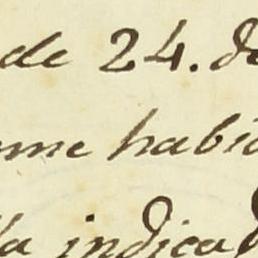 de 24. de
me habi
la indicad